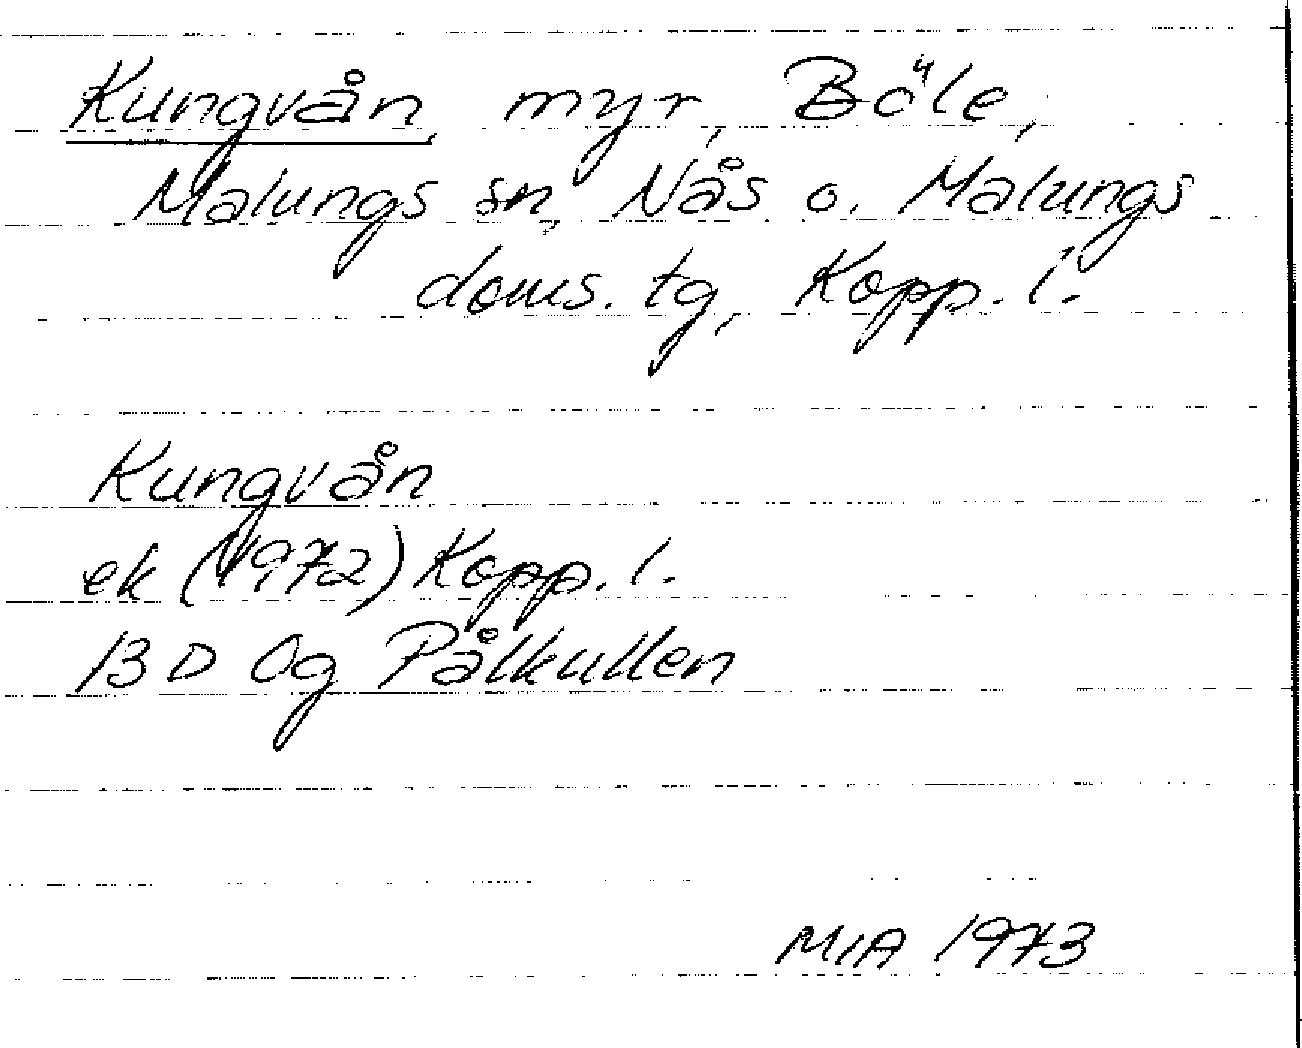 Kungvån, myr, Böle,
Malungs sn, Nås o. Malungs
doms. tg, Kopp. l.
Kungvån
ek (1972) Kopp. l.
13 D 0g Pålkullen
MIA 1973